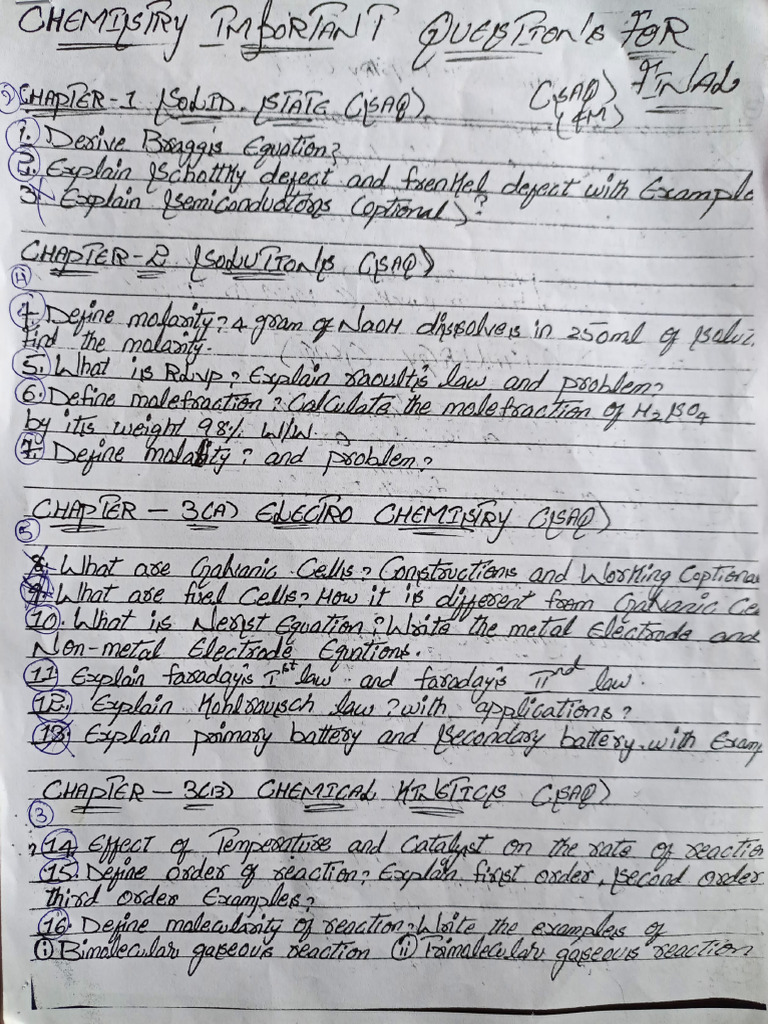 CHEMISTRY IMPORTANT QUESTIONS FOR
FINAL
2 CHAPTER-1 SOLID STATE (SAQ) (SAQ)
(4M)
1. Derive Bragg's Equation?
2. Explain Schottky defect and frenkel defect with Example
3. Explain Semiconductors (optional)?
CHAPTER-2 SOLUTIONS (SAQ)
4
4. Define molarity? 4 gram of NaOH dissolves in 250ml of solut.
find the molarity.
5. What is RLVP? Explain raoult's law and problem?
6. Define molefraction? Calculate the molefraction of H2SO4
by it's weight 98% W/W.
7. Define molality? and problem?
CHAPTER - 3(A) ELECTRO CHEMISTRY (SAQ)
5
8. What are Galvanic Cells? Constructions and Working (optiona
9. What are fuel Cells? How it is different from Galvanic Ce
10. What is Nerist Equation? Write the metal Electrode and
Non-metal Electrode Equntions.
11 Explain faraday's Ist law and faraday's IInd law.
12. Explain Kohlrausch law? with applications?
13. Explain primary battery and secondary battery with Examp
CHAPTER - 3(B) CHEMICAL KINETICS (SAQ)
3
14. Effect of Temperature and Catalyst on the rate of reaction
15. Define order of reaction? Explain first order, second order
third order Examples?
16. Define molecularity of reaction? Write the examples of
(i) Bimolecular gaseous reaction (ii) Trimolecular gaseous reaction